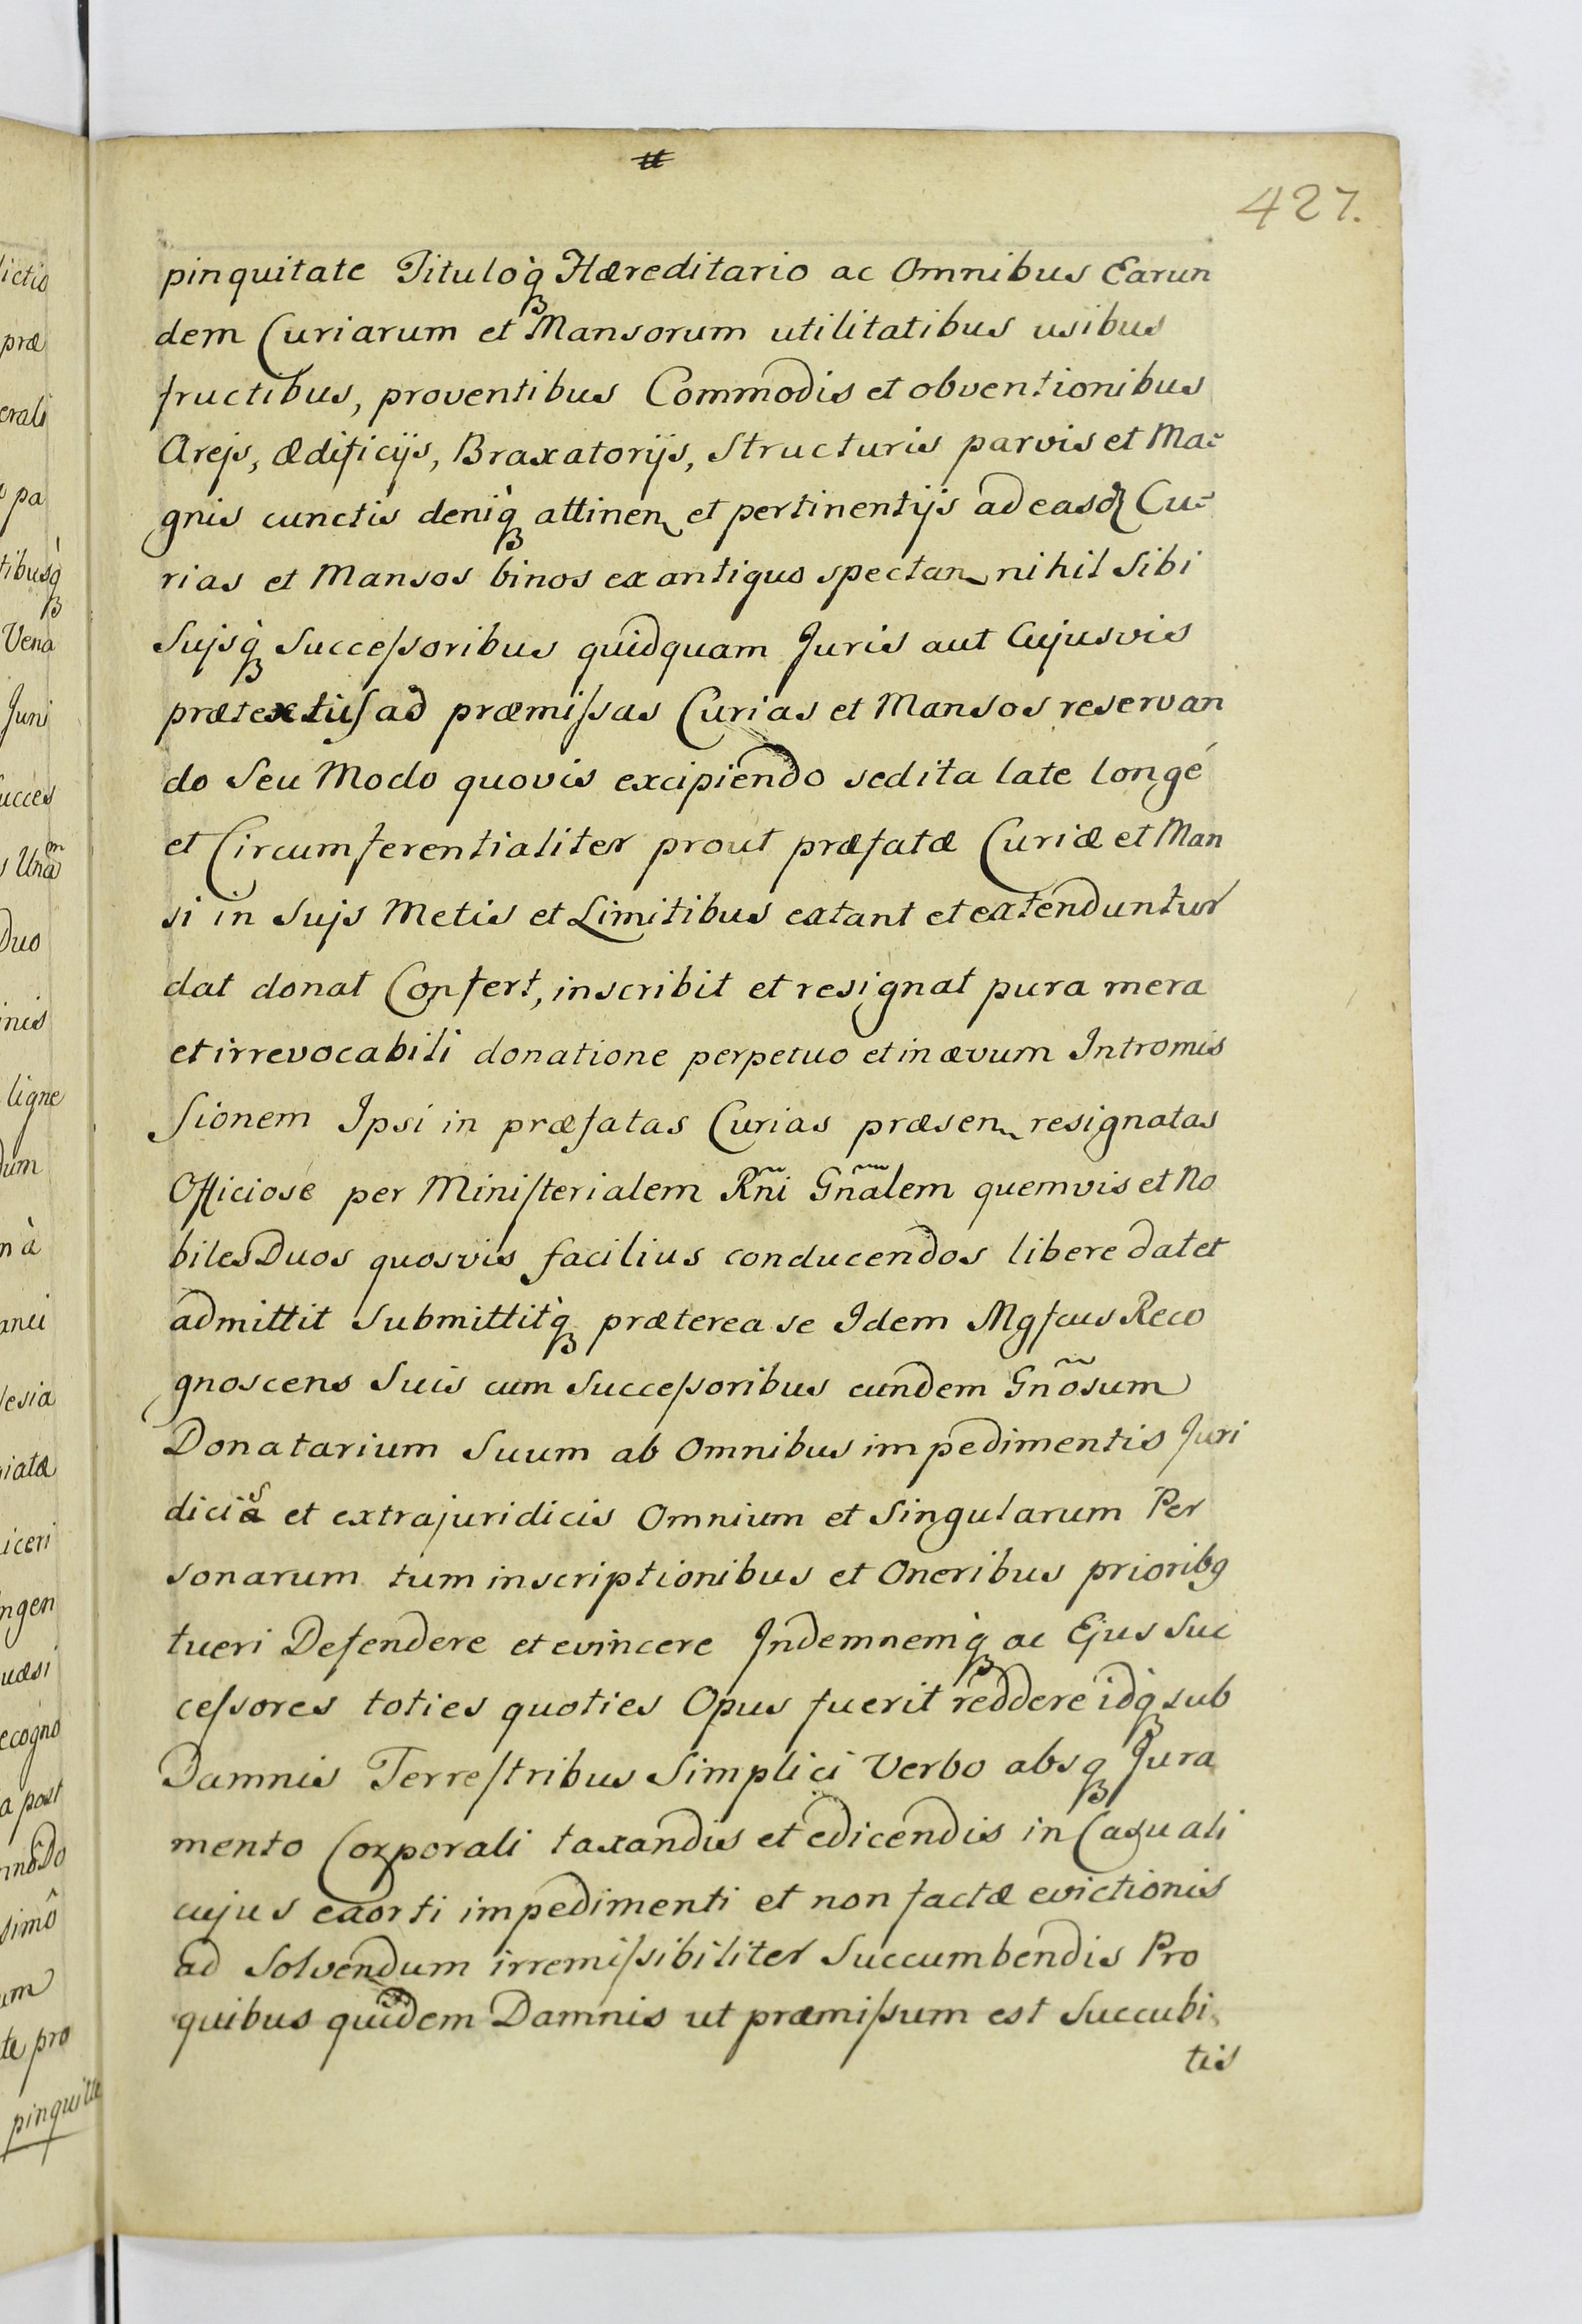 427.
pinquitate Tituloq̀ꝫ Hæreditario ac Omnibus Earun
dem Curiarum et Mansorum utilitatibus usibus
fructibus, proventibus Commodis et obventionibus
Arejs, ædificijs, Braxatorijs, Structuris parvis et Ma=
gnis cunctis deniq̀ꝫ attinen et pertinentijs ad easd Cu=
rias et Mansos binos ex antiquo spectan nihil Sibi
Sujsq̀ꝫ Succeſsoribus quidquam Juris aut Cujusvis
prætextuſ ad præmiſsas Curias et Mansos reservan
do Seu Modo quovis excipiendo sed ita late longé
et Circumferentialiter prout præfatæ Curiæ et Man
si in Sujs Metis et Limitibus extant et extenduntur
dat donat Confert, inscribit et resignat pura mera
et irrevocabili donatione perpetuo et in ævum Intromis
sionem Ipsi in præfatas Curias præsen resignatas
Officiosé per Miniſterialem Rñi Gñalem quemvis et No
biles Duos quosvis facilius conducendos libere dat et
admittit Submittitq̀ꝫ præterea se Idem Mgfcus Reco
gnoscens Suis cum Succeſsoribus eundem Gñosum
Donatarium Suum ab Omnibus impedimentis Juri
dicis et extrajuridicis Omnium et Singularum Per
sonarum tum inscriptionibus et Oneribus prioribꝯ
tueri Defendere et evincere Indemnemq̀ꝫ ac Ejus Suc
ceſsores toties quoties Opus fuerit reddere idq̀ꝫ sub
Damnis Terreſtribus Simplici Verbo absqꝫ Jura
mento Corporali taxandis et edicendis in Casu ali
cujus exorti impedimenti et non factæ evictionis
ad Solvendum irremiſsibiliter Succumbendis Pro
quibus quidem Damnis ut præmiſsum est Succubi
tis